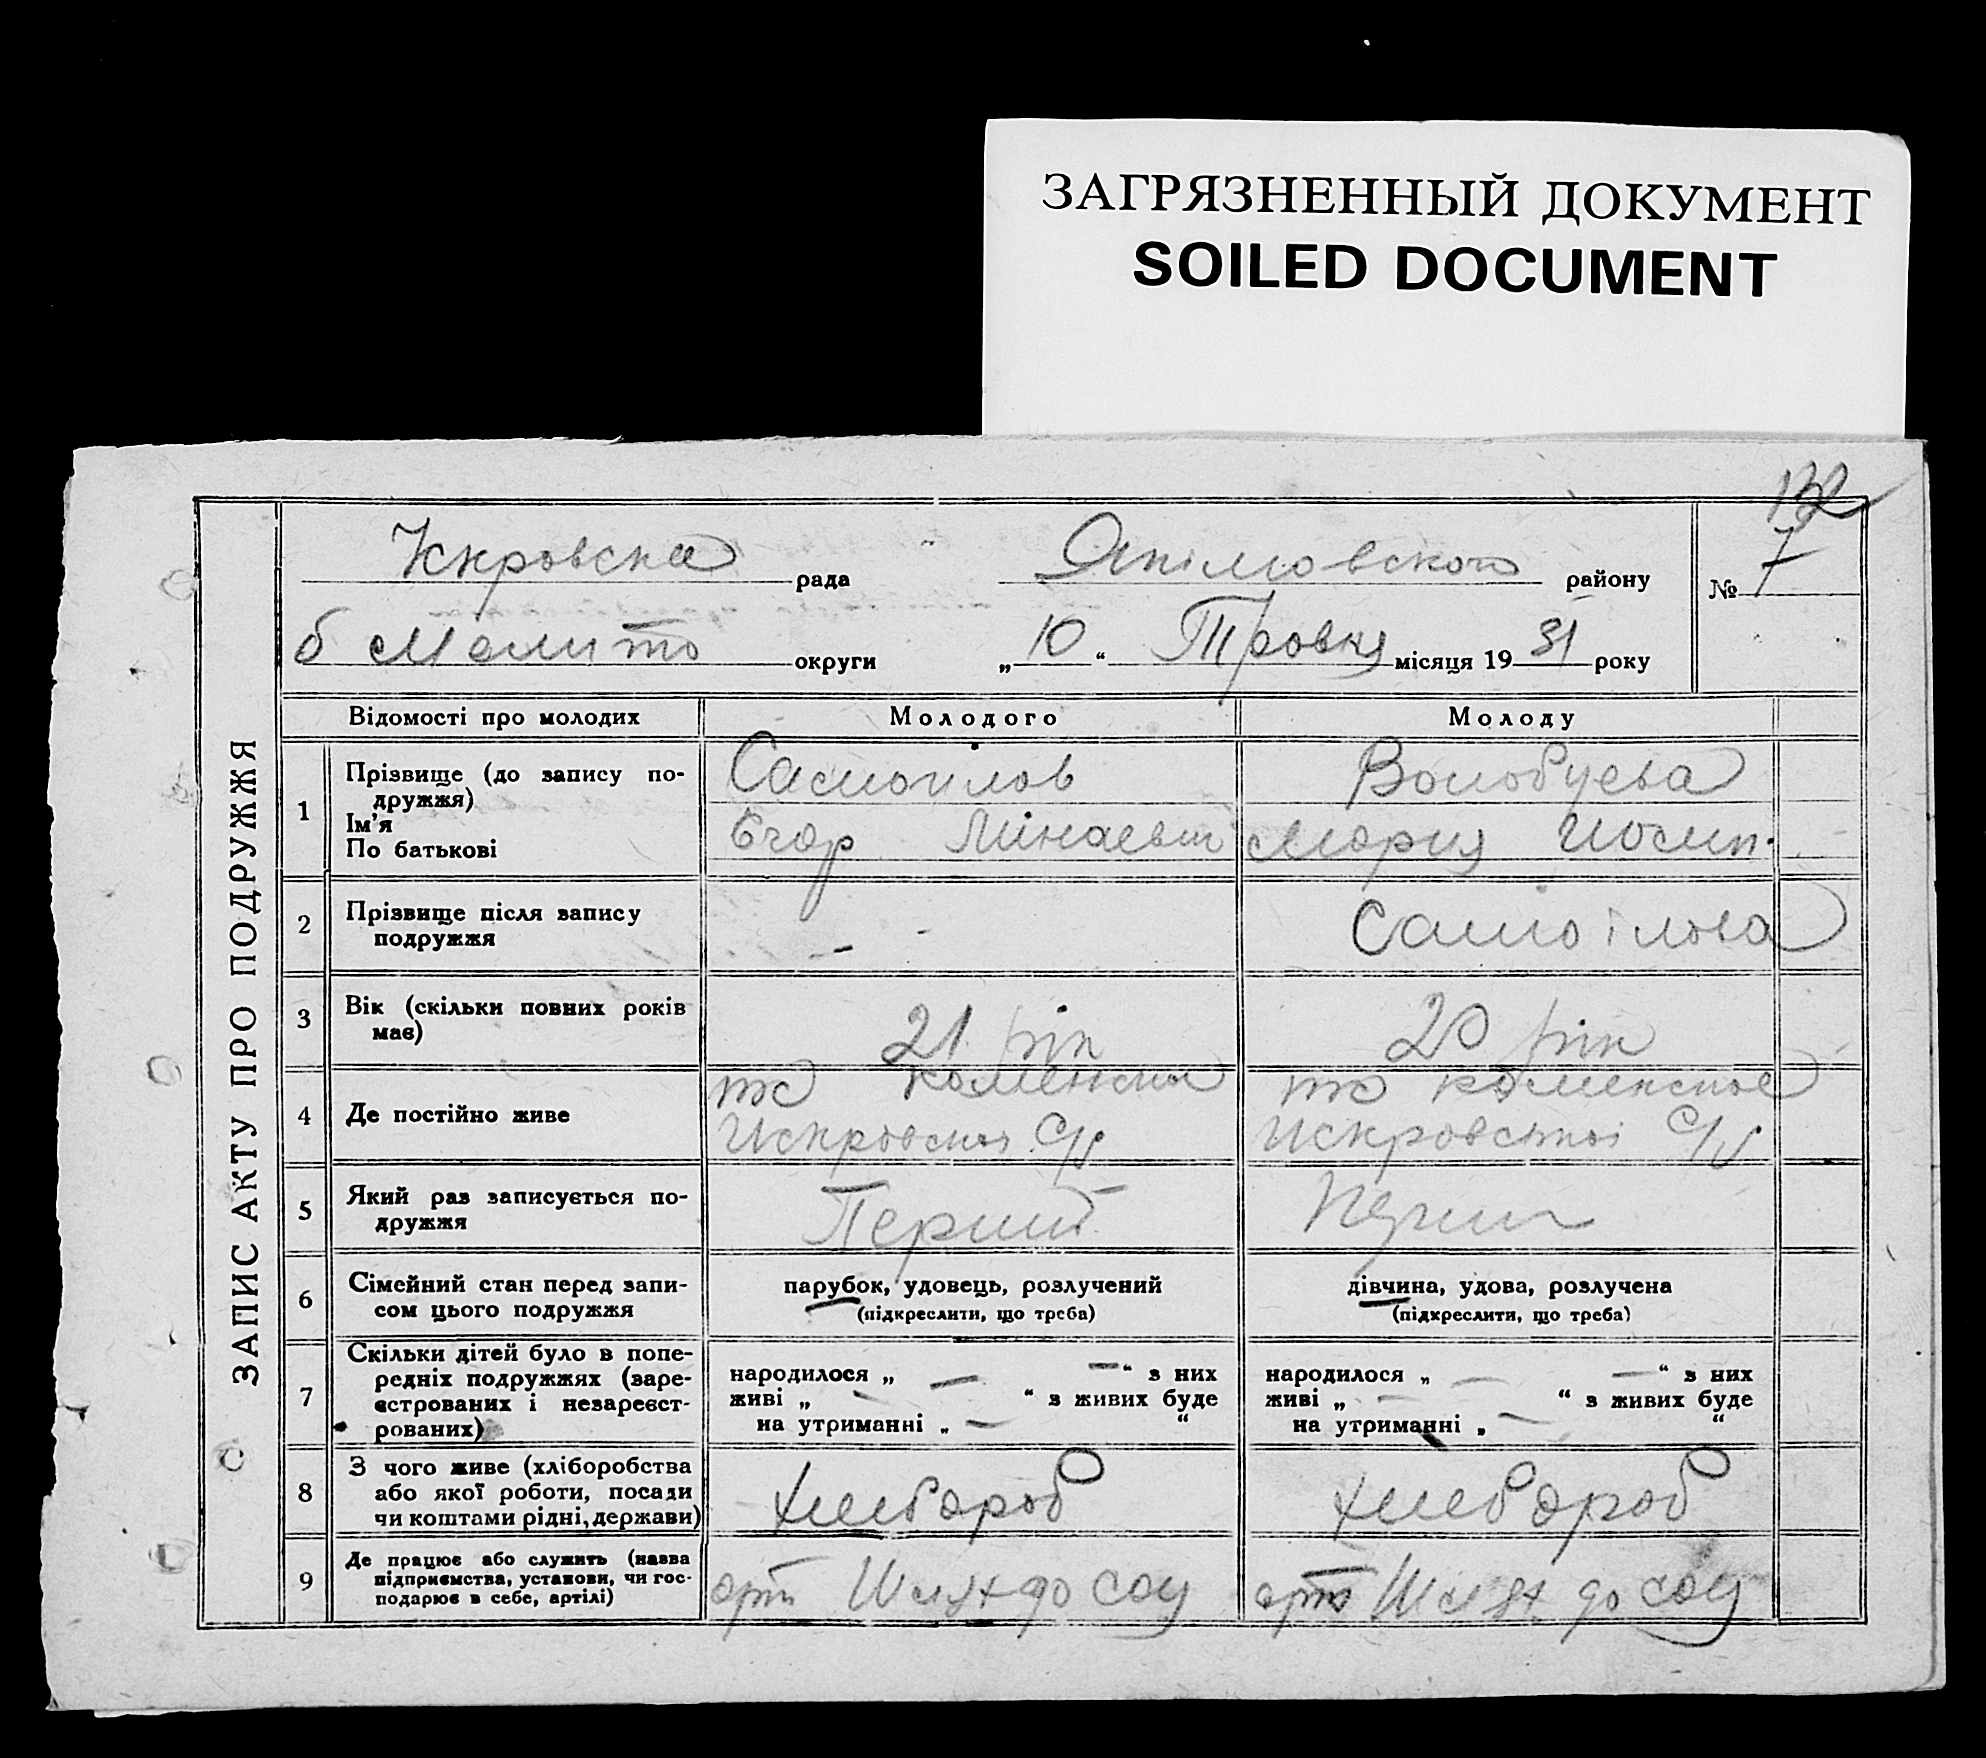 ЗАГРЯЗНЕННЫЙ ДОКУМЕНТ
SOILED DOCUMENT
132
ЗАПИС АКТУ ПРО ПОДРУЖЖЯ
Іскровска рада Якімовского району № 7
б Мелито округи „10“ Травня місяця 1931 року
Відомості про молодих Молодого Молоду
1 Прізвище (до запису подружжя) Самоилов Волобуева
Ім'я
По батькові Егор Мінаевич Мария Иосип.
2 Прізвище після запису подружжя - - Самоілова
3 Вік (скільки повних років має) 21 рік 20 рік
4 Де постійно живе
Искровської С/р Искровської С/р
5 Який раз записується подружжя Перший
6 Сімейний стан перед записом цього подружжя парубок, удовець, розлучений дівчина, удова, розлучена
(підкреслити, що треба) (підкреслити, що треба)
7 Скільки дітей було в попередніх подружжях (зареєстрованих і незареєстрованих)
народилося „ — — “ з них народилося „ — — “ з них
живі „ — “ з живих буде живі „ — “ з живих буде
на утриманні „ — “ на утриманні „ — “
8 З чого живе (хліборобства або якої роботи, посади чи коштами рідні, держави) Хлебороб Хлебороб
9 Де працює або служить (назва підприємства, установи, чи господарює в себе, артілі) арт Шлях до соц арт Шлях до соц